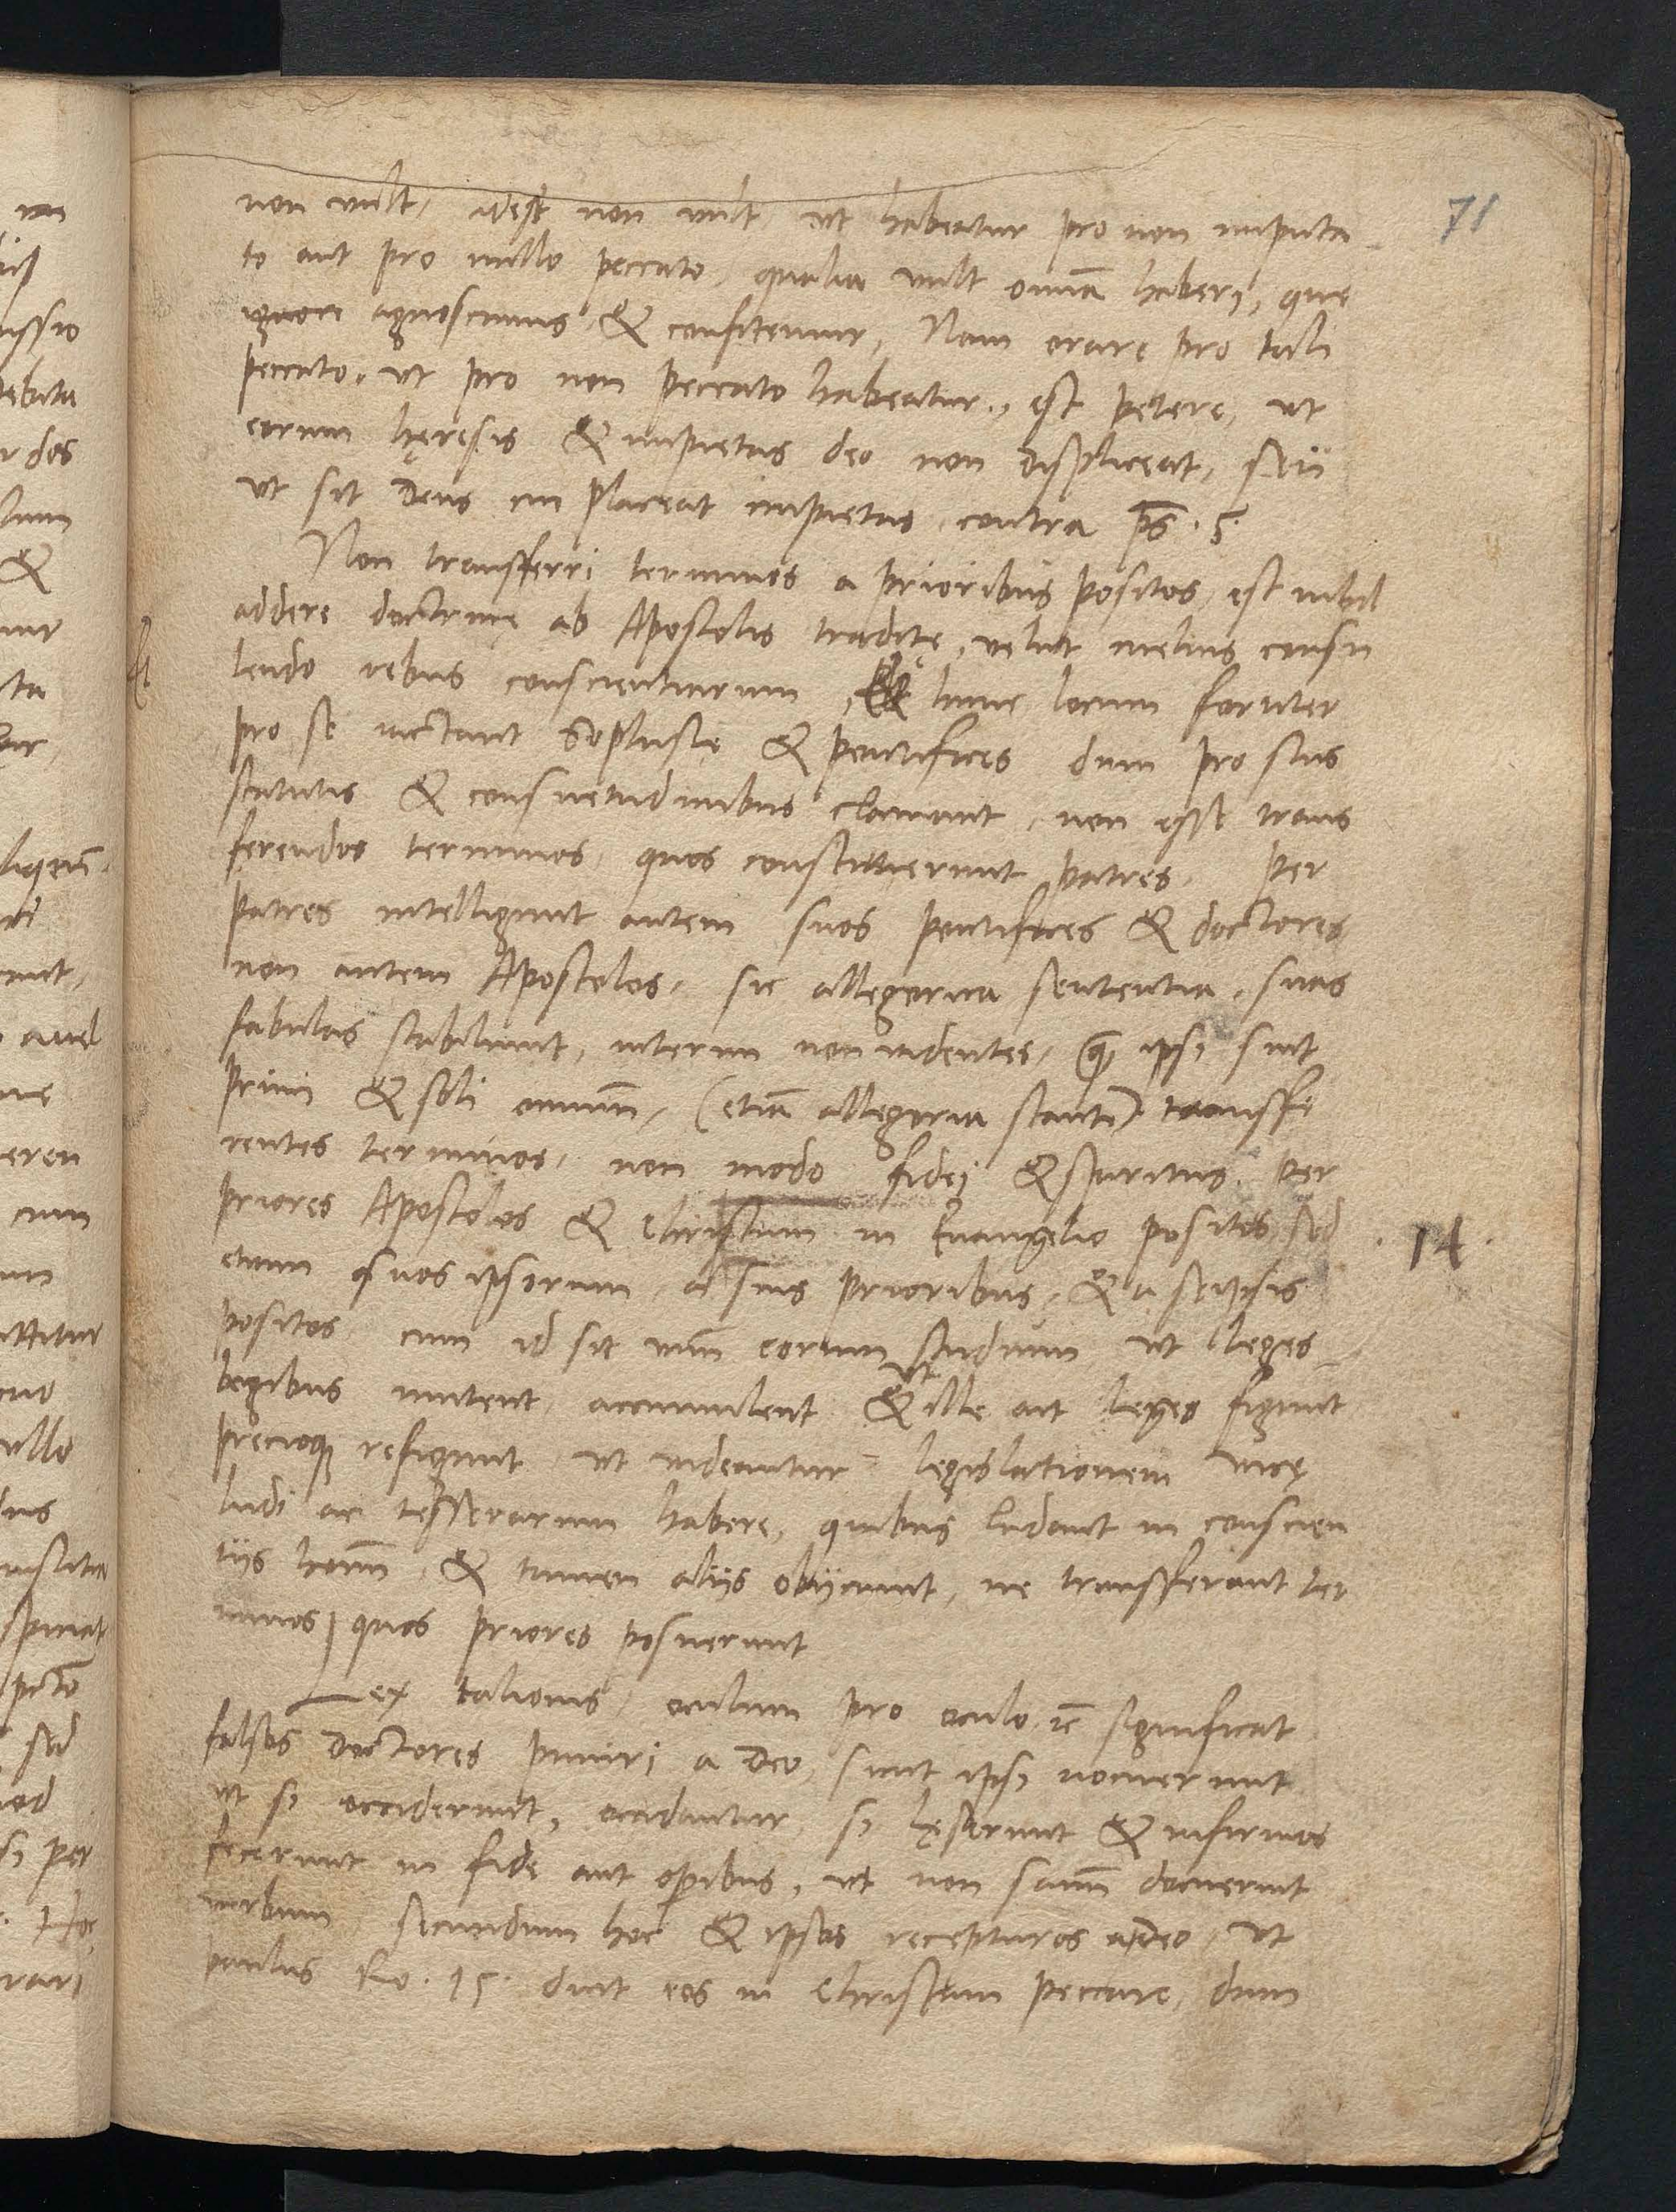 71
non vult, idest non vult ut habeatur pro non imputa
to aut pro nullo peccato, qualia vult omnia haberi, quę
ignon agnoscimus & confitemur, Nam orare pro tali
peccato, ut pro non peccato habeatur, est petere, ut
eorum hęresis & impietas deo non displiceat, seu
ut sit Deus cui placeat impietas contra ps. 5.
Non transferri terminos a prioribus positos, est nihil
addere doctrinę ab Apostolis traditę, velut melius consu
lendo rebus conscientiarum, & hunc locum fortiter
pro se iactant Sophistę & pontifices dum pro suis
statutis & consuetudinibus clamant, non esse trans
ferendos terminos, quos constituerunt patres. Per
patres intelligunt autem suos pontifices & doctores
non autem Apostolos, sic allegorica sententia, suas
fabulas stabiliunt, interim non videntes, ꝙ ipsi sint
primi & soli omniū, (etiā allegoria stante) transfe
rentes terminos, non modo fidei & spiritus per
priores Apostolos & Christum in Euangelio positos sed
etiam suos ipsorum, a suis prioribus, & a seipsis
positos cum id sit unū eorum studium ut leges
legibus mutent, accumulent & ut ille ait leges figunt
precioque refigunt, ut videantur legislationem vice
ludi ac tesserarum habere, quibus ludant in conscien
tijs hominū, & tamen alijs obijciunt, ne transferant ter
minos, quos priores posuerunt
Lex talionis, oculum pro oculo ꝛc significat
falsos Doctores puniri a Deo, sicut ipsi nocuerunt
ut si occiderunt, occidantur, si lęserunt & infirmos
fecerunt in fide aut operibus, ut non sanū docuerint
verbum, secundum hoc & ipsos recepturos a Deo, ut
paulus Ro. 15. dicit eos in Christum peccare, dum
. 14 .